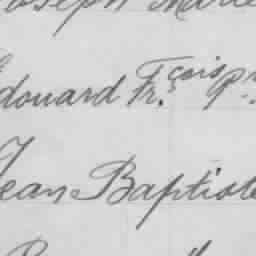 Joseph Marie
Edouard Fr.çois P.
Jean Baptiste